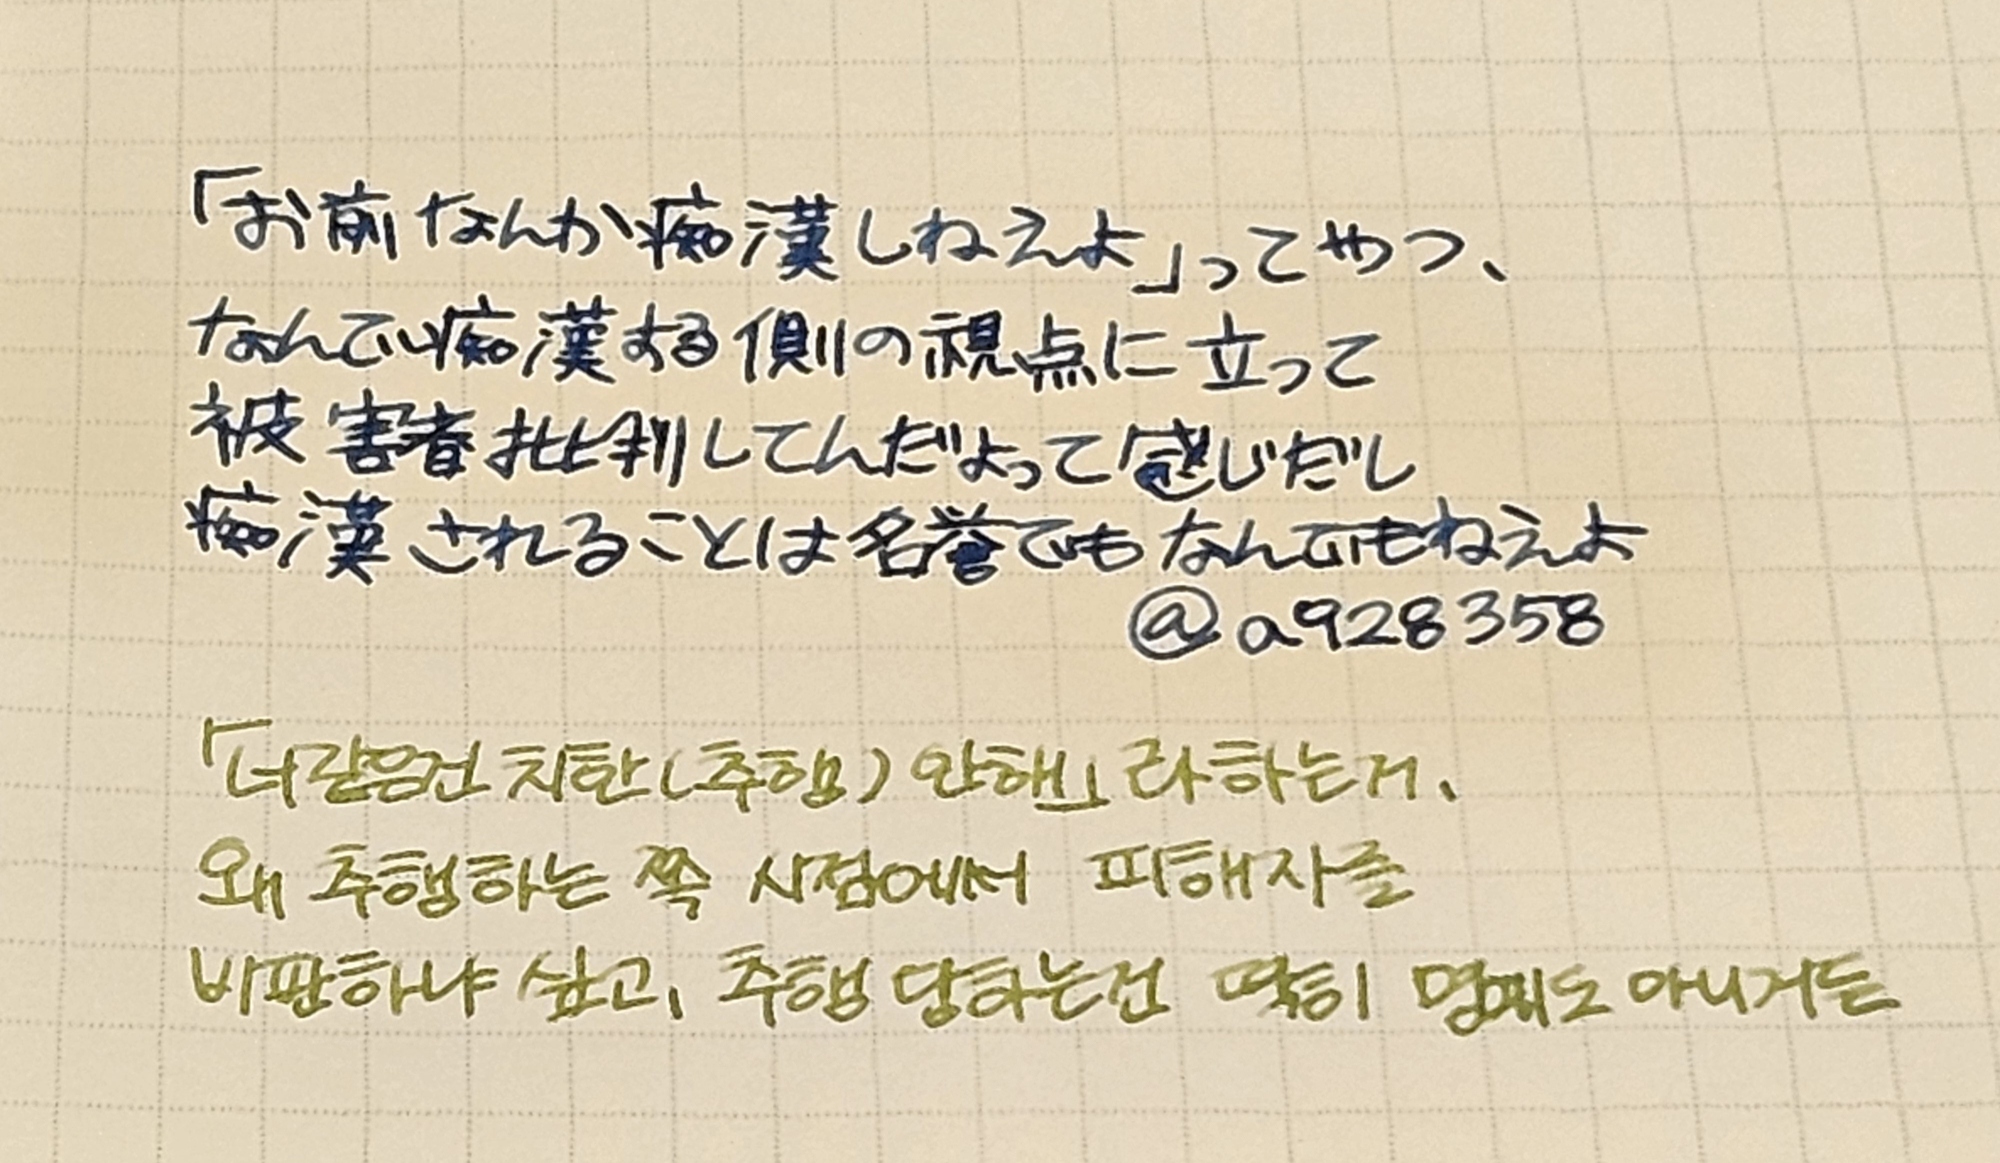 「お前なんか痴漢しねえよ」ってやつ、
なんで痴漢する側の視点に立って
被害者批判してんだよって感じだし
痴漢されることは名誉でもなんでもねえよ
@a928358
「너같은건 치한(추행) 안해」라하는거、
왜 추행하는 쪽 시점에서 피해자를
비판하냐 싶고, 추행 당하는건 딱히 명예도 아니거든